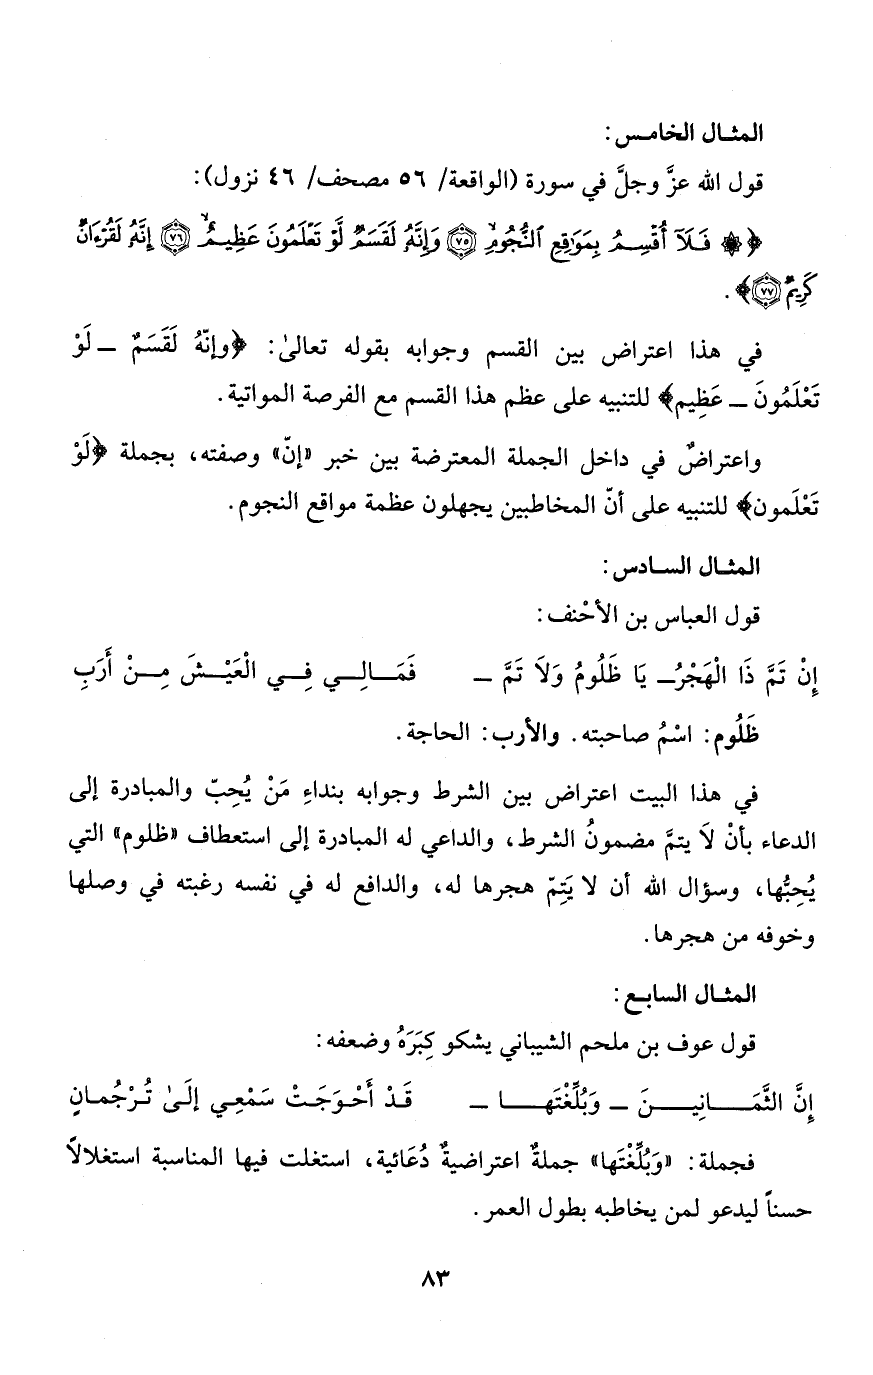 المثال الخامس:
قول الله عزَّ وجلَّ في سورة (الواقعة/ ٥٦ مصحف/ ٤٦ نزول):
﴿۞ فَلَآ أُقْسِمُ بِمَوَٰقِعِ ٱلنُّجُومِ ۝٧٥ وَإِنَّهُۥ لَقَسَمٌ لَّوْ تَعْلَمُونَ عَظِيمٌ ۝٧٦ إِنَّهُۥ لَقُرْءَانٌ
كَرِيمٌ ۝٧٧﴾.
في هذا اعتراض بين القسم وجوابه بقوله تعالىٰ: ﴿وإنّهُ لَقَسَمٌ ـ لَوْ
تَعْلَمُونَ ـ عَظِيم﴾ للتنبيه على عظم هذا القسم مع الفرصة المواتية.
واعتراضٌ في داخل الجملة المعترضة بين خبر «إنّ» وصفته، بجملة ﴿لَوْ
تَعْلَمون﴾ للتنبيه على أنّ المخاطبين يجهلون عظمة مواقع النجوم.
المثال السادس:
قول العباس بن الأحْنف:
إنْ تَمَّ ذَا الْهَجْرُ ـ يَا ظَلُومُ وَلاَ تَمَّ ـ فَمَالِي فِي الْعَيْشِ مِنْ أَرَبِ
ظَلُوم: اسْمُ صاحبته. والأرب: الحاجة.
في هذا البيت اعتراض بين الشرط وجوابه بنداءِ مَنْ يُحِبّ والمبادرة إلى
الدعاء بأنْ لاَ يتمَّ مضمونُ الشرط، والداعي له المبادرة إلى استعطاف «ظلوم» التي
يُحِبُّها، وسؤال الله أن لا يَتِمّ هجرها له، والدافع له في نفسه رغبته في وصلها
وخوفه من هجرها.
المثال السابع:
قول عوف بن ملحم الشيباني يشكو كِبَرَهُ وضعفه:
إنَّ الثَّمَانِينَ ـ وَبُلِّغْتَهَا ـ قَدْ أَحْوَجَتْ سَمْعِي إلَىٰ تُرْجُمانِ
فجملة: «وَبُلِّغْتَها» جملةٌ اعتراضيةٌ دُعَائية، استغلت فيها المناسبة استغلالاً
حسناً ليدعو لمن يخاطبه بطول العمر.
٨٣